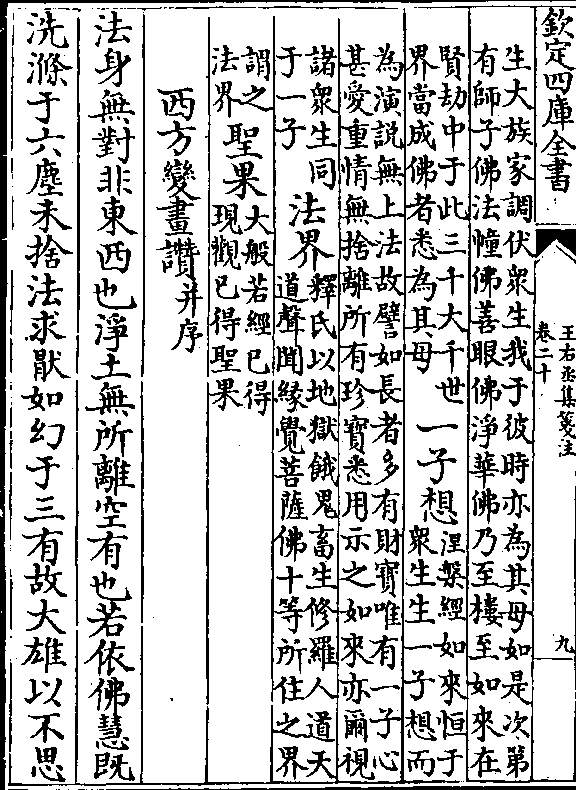 欽定四庫全書
王右丞集箋注
卷二十
九
生大族家調伏衆生我于彼時亦為其母如是次第
有師子佛法幢佛善眼佛淨華佛乃至樓至如來在
賢劫中于此三千大千世
界當成佛者悉為其母
一子想
涅槃經如來恒于
衆生生一子想而
為演說無上法故譬如長者多有財寶唯有一子心
甚愛重情無捨離所有珍寶悉用示之如來亦爾視
諸衆生同
于一子
法界
釋氏以地獄餓鬼畜生修羅人道天
道聲聞緣覺菩薩佛十等所住之界
謂之
法界
聖果
大般若經已得
現觀已得聖果
西方變畫讚并序
法身無對非東西也淨土無所離空有也若依佛慧既
洗滌于六塵未捨法求厭如幻于三有故大雄以不思